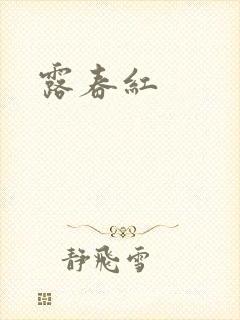 露春紅
静飛雪